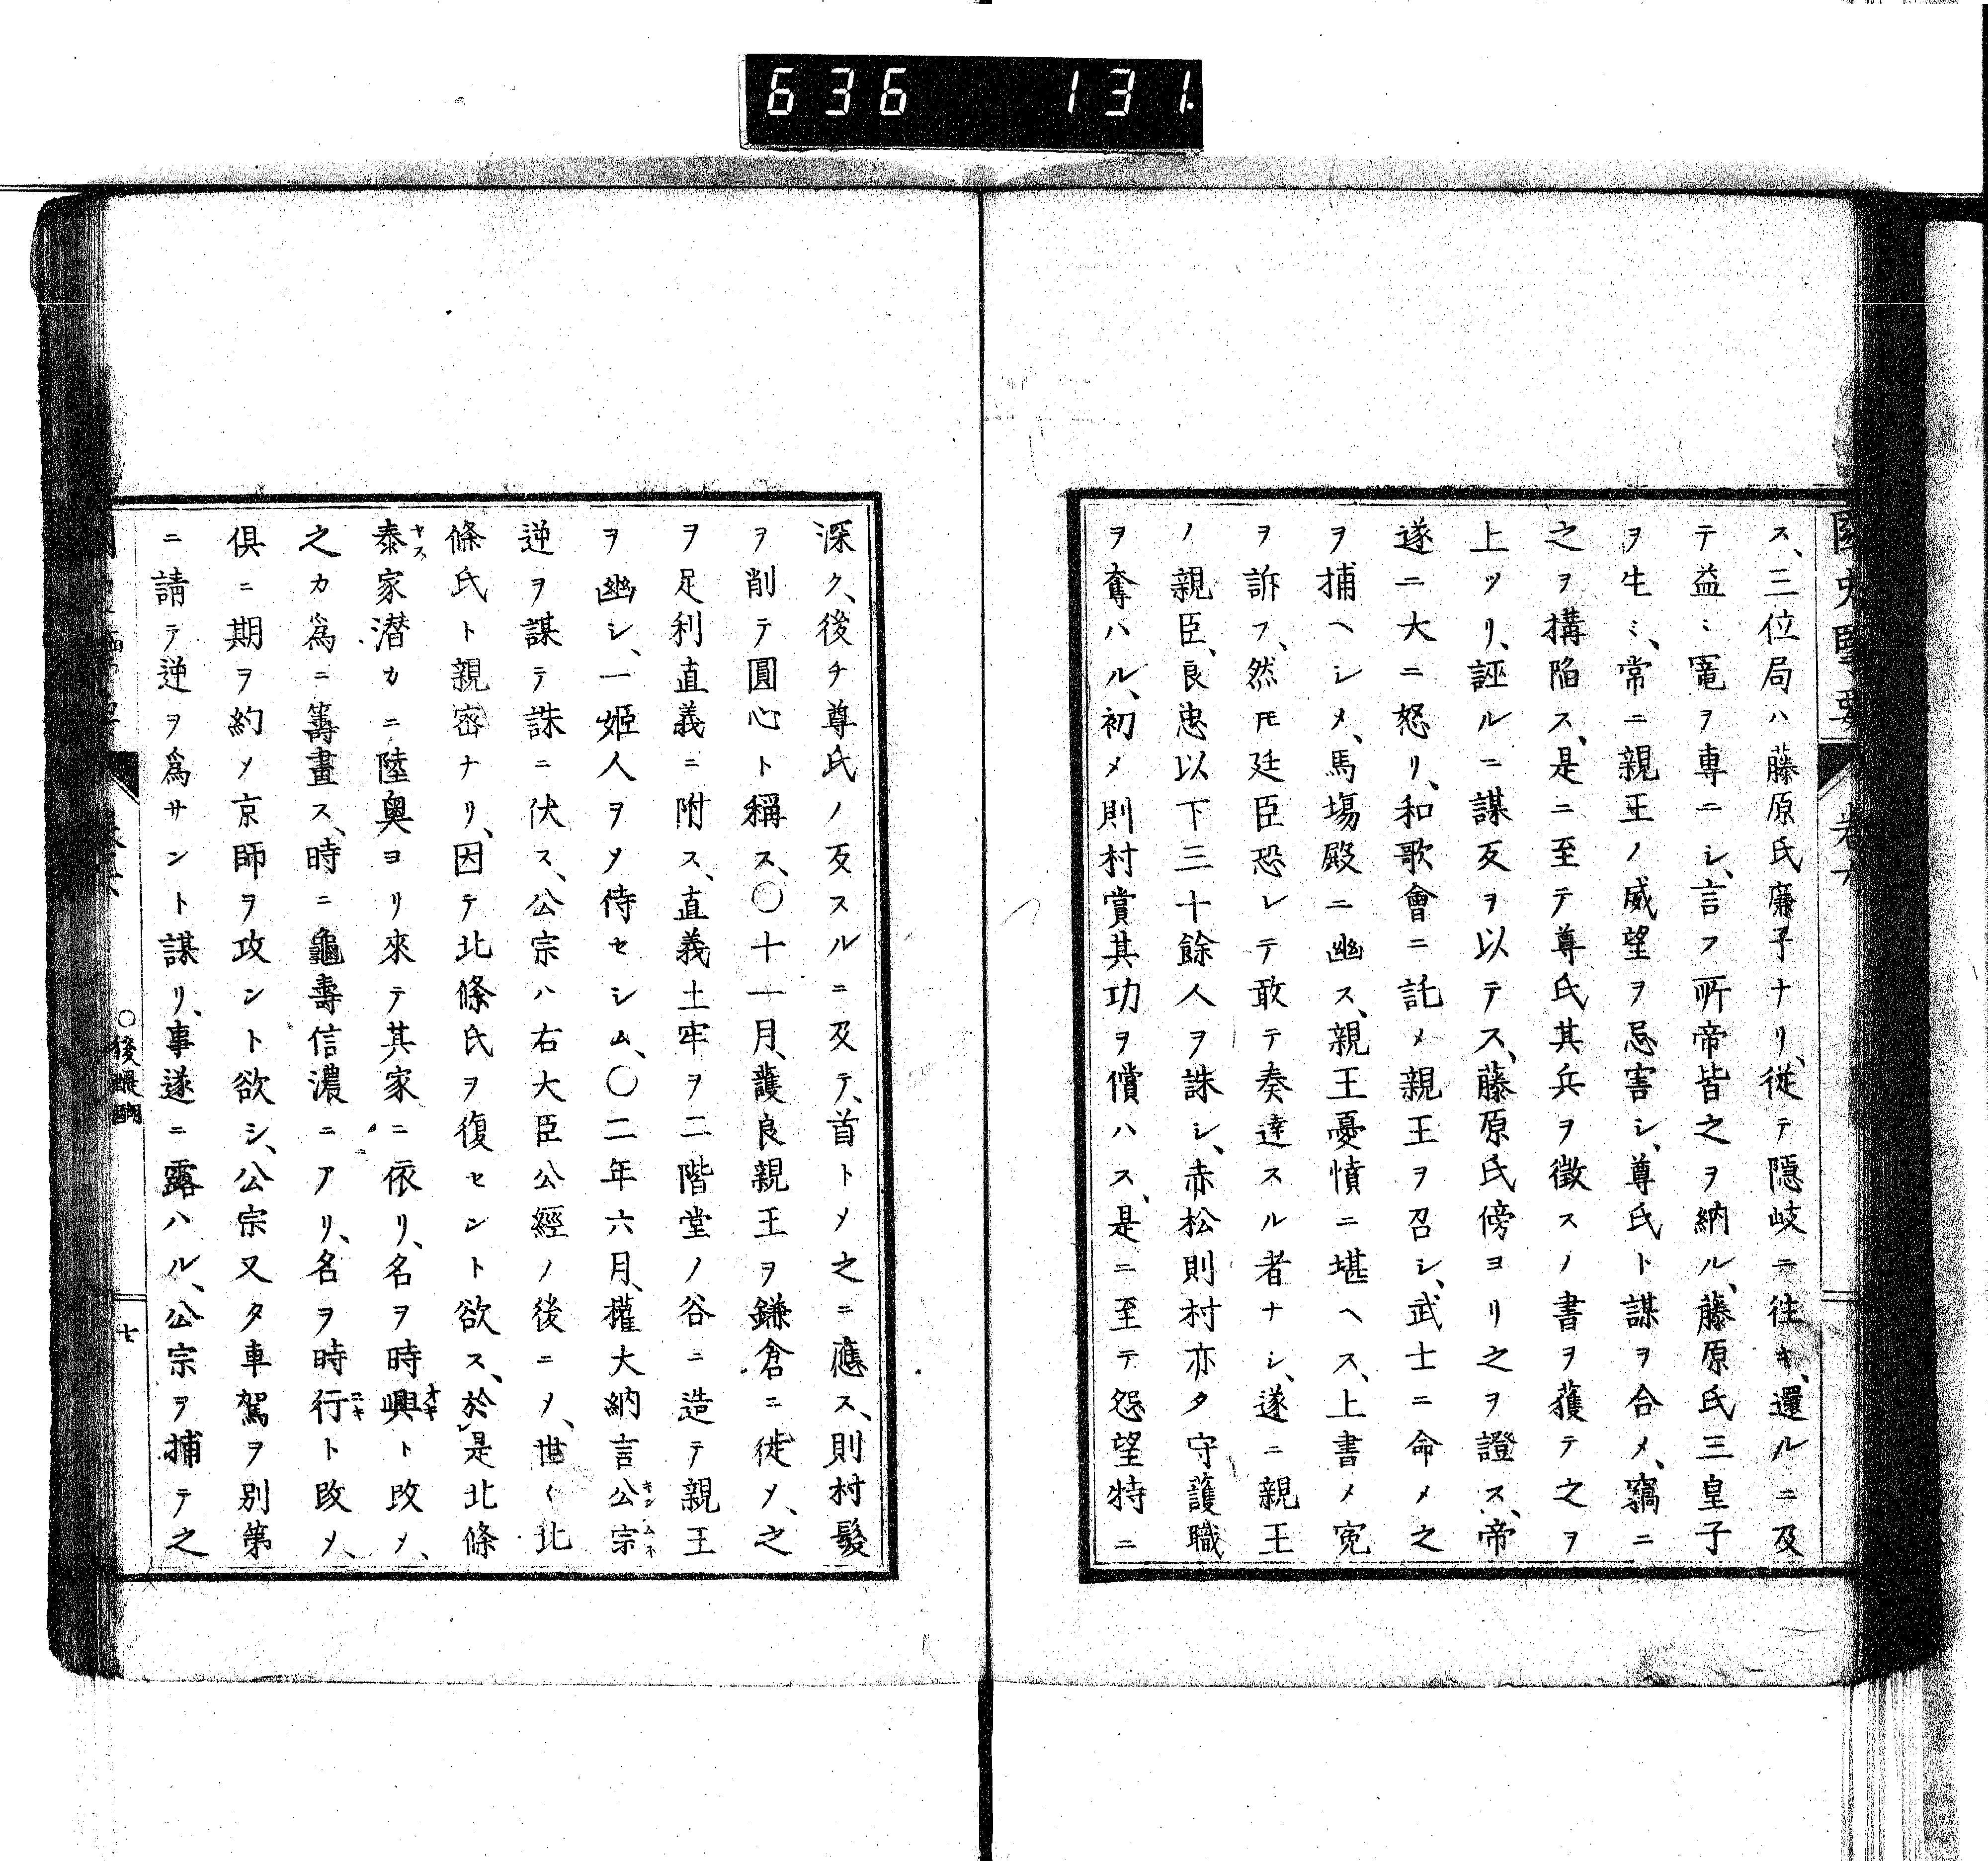 636 131
ス、三位局ハ藤原氏廉子ナリ、從テ隱岐ニ往キ、還ルニ及
テ益ミ寵ヲ專ニシ、言フ所帝皆之ヲ納ル、藤原氏三皇子
ヲ生ミ、常ニ親王ノ威望ヲ忌害シ、尊氏ト謀ヲ合メ、竊ニ
之ヲ構陷ス、是ニ至テ尊氏其兵ヲ徴スノ書ヲ獲テ之ヲ
上ツリ、誣ルニ謀反ヲ以テス、藤原氏傍ヨリ之ヲ證ス、帝
遂ニ大ニ怒リ、和歌會ニ託メ親王ヲ召シ、武士ニ命メ之
ヲ捕ヘシメ、馬塲殿ニ幽ス、親王憂憤ニ堪ヘス、上書メ寃
ヲ訴フ、然𪜈廷臣恐レテ敢テ奏達スル者ナシ、遂ニ親王
ノ親臣、良忠以下三十餘人ヲ誅シ、赤松則村亦タ守護職
ヲ奪ハル、初メ則村賞其功ヲ償ハス、是ニ至テ怨望特ニ
深ク、後チ尊氏ノ反スルニ及テ、首トメ之ニ應ス、則村髮
ヲ削テ圓心ト稱ス、○十一月、護良親王ヲ鎌倉ニ徙メ、之
ヲ足利直義ニ附ス、直義土牢ヲ二階堂ノ谷ニ造テ親王
ヲ幽シ、一姬人ヲメ侍セシム、○二年六月、權大納言公宗
逆ヲ謀テ誅ニ伏ス、公宗ハ右大臣公經ノ後ニメ、世〱北
條氏ト親密ナリ、因テ北條氏ヲ復セント欲ス、於是北條
泰家潜カニ陸奥ヨリ來テ其家ニ依リ、名ヲ時興ト改メ、
之カ爲ニ籌畫ス、時ニ龜壽信濃ニアリ、名ヲ時行ト改メ、
倶ニ期ヲ約メ京師ヲ攻ント欲シ、公宗又タ車駕ヲ別第
ニ請テ逆ヲ爲サント謀リ、事遂ニ露ハル、公宗ヲ捕テ之
○後醍醐 七